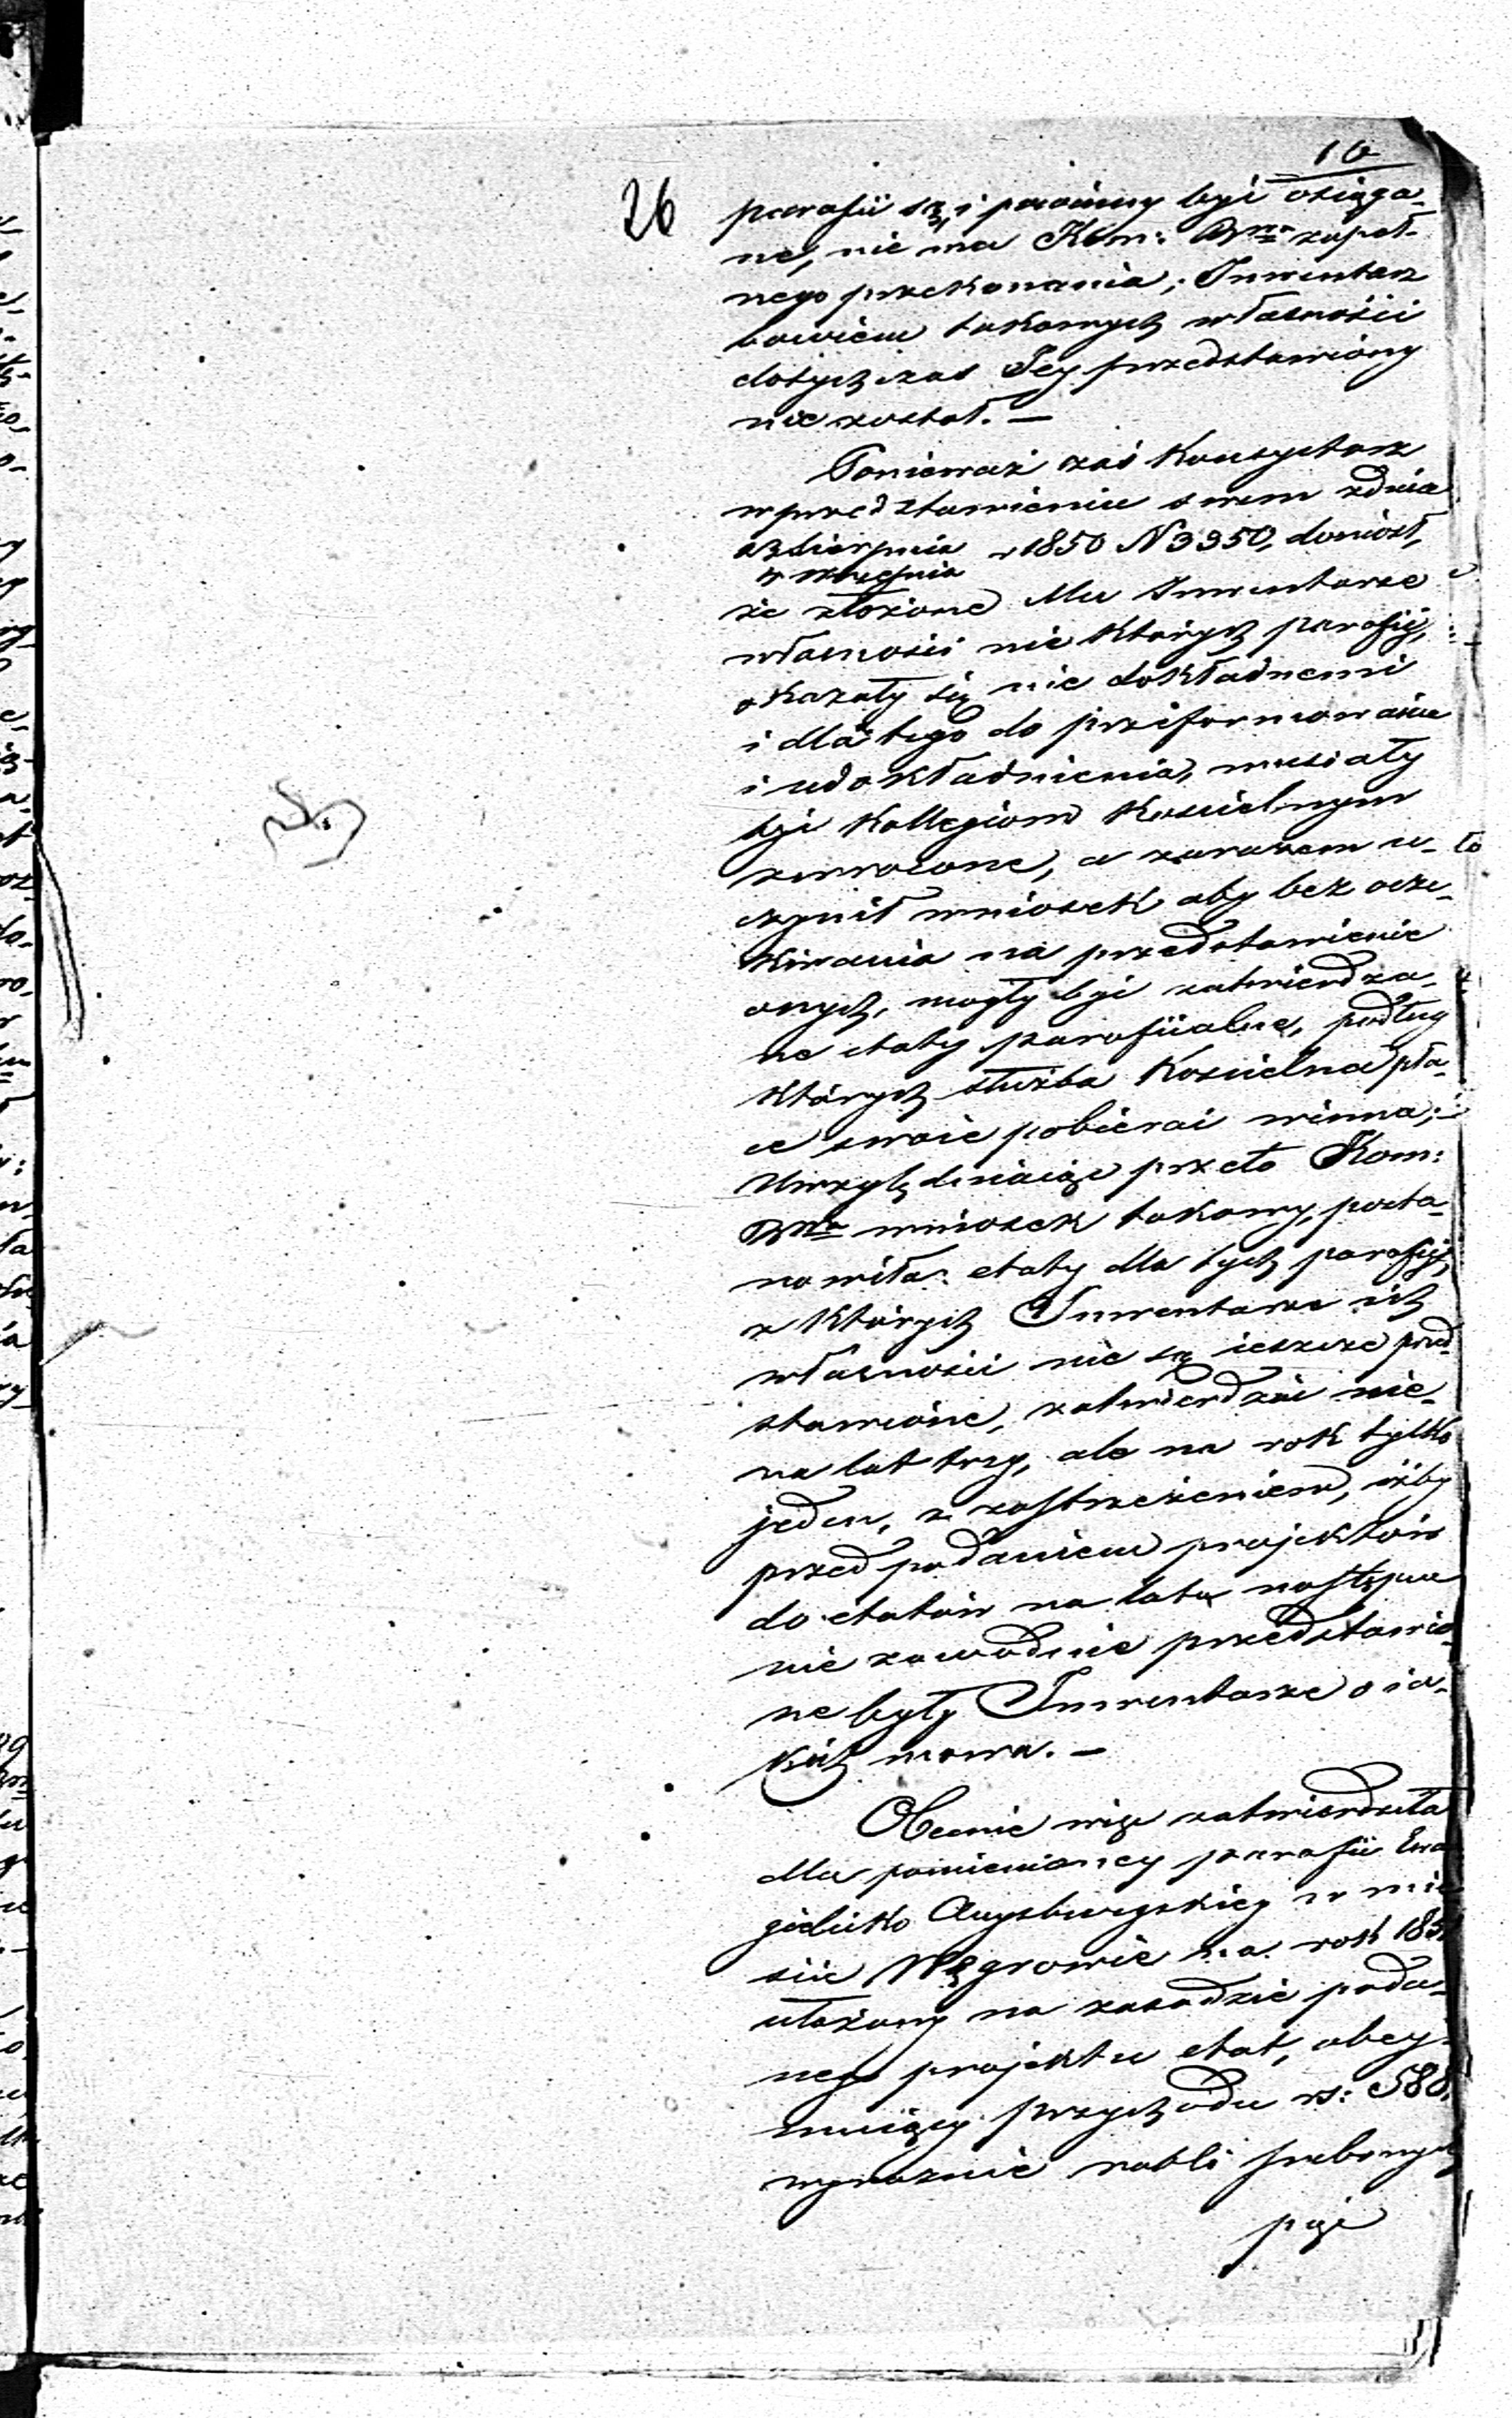 16
26
parafii są i powinny być osiąga-
ne, nie ma Kom: Rzą zupeł-
nego przekonania; Inwentarz
bowiem takowych własności
dotychczas Jey przedstawiony
nie został. —
Ponieważ zaś Konsystorz
w przedstawieniu swem z dnia
23 Sierpnia r 1850 N 3350, doniósł,
4 września
że złożone Mu Inwentarze
własności nie których parafij,
okazały się nie dokładnemi
i dla tego do przeformowania
i udokładnienia, musiały
być Kollegiom Kościelnym
zwrócone, a zarazem u-
czynił wniosek aby bez ocze-
kiwania na przedstawienie
onych, mogły być zatwierdza-
ne etaty parafiialne, podług
których służba Kościelna pła-
ce swoie pobierać winna;
Uwzględniaiąc przeto Kom:
Rzą wniosek takowy, posta-
nowiła: etaty dla tych parafij,
z których Inwentarze ich
własności nie są ieszcze przed-
stawione, zatwierdzać nie
na lat trzy, ale na rok tylko
jeden, z zastrzeżeniem, iżby
przed podaniem projektów
do etatów na lata następne
nie zawodnie przedstawio-
ne były Inwentarze o ia-
kich mowa. —
Obecnie więc zatwierdziła
dla pomienioney parafii Ewa
gielicko Augsburgskiey w mie
ście Węgrowie na rok 1851
ułożony na zasadzie poda-
nego projektu etat, obey-
muiący przychodu rs: 588,
wyraznie rubli srebrnych
pięć